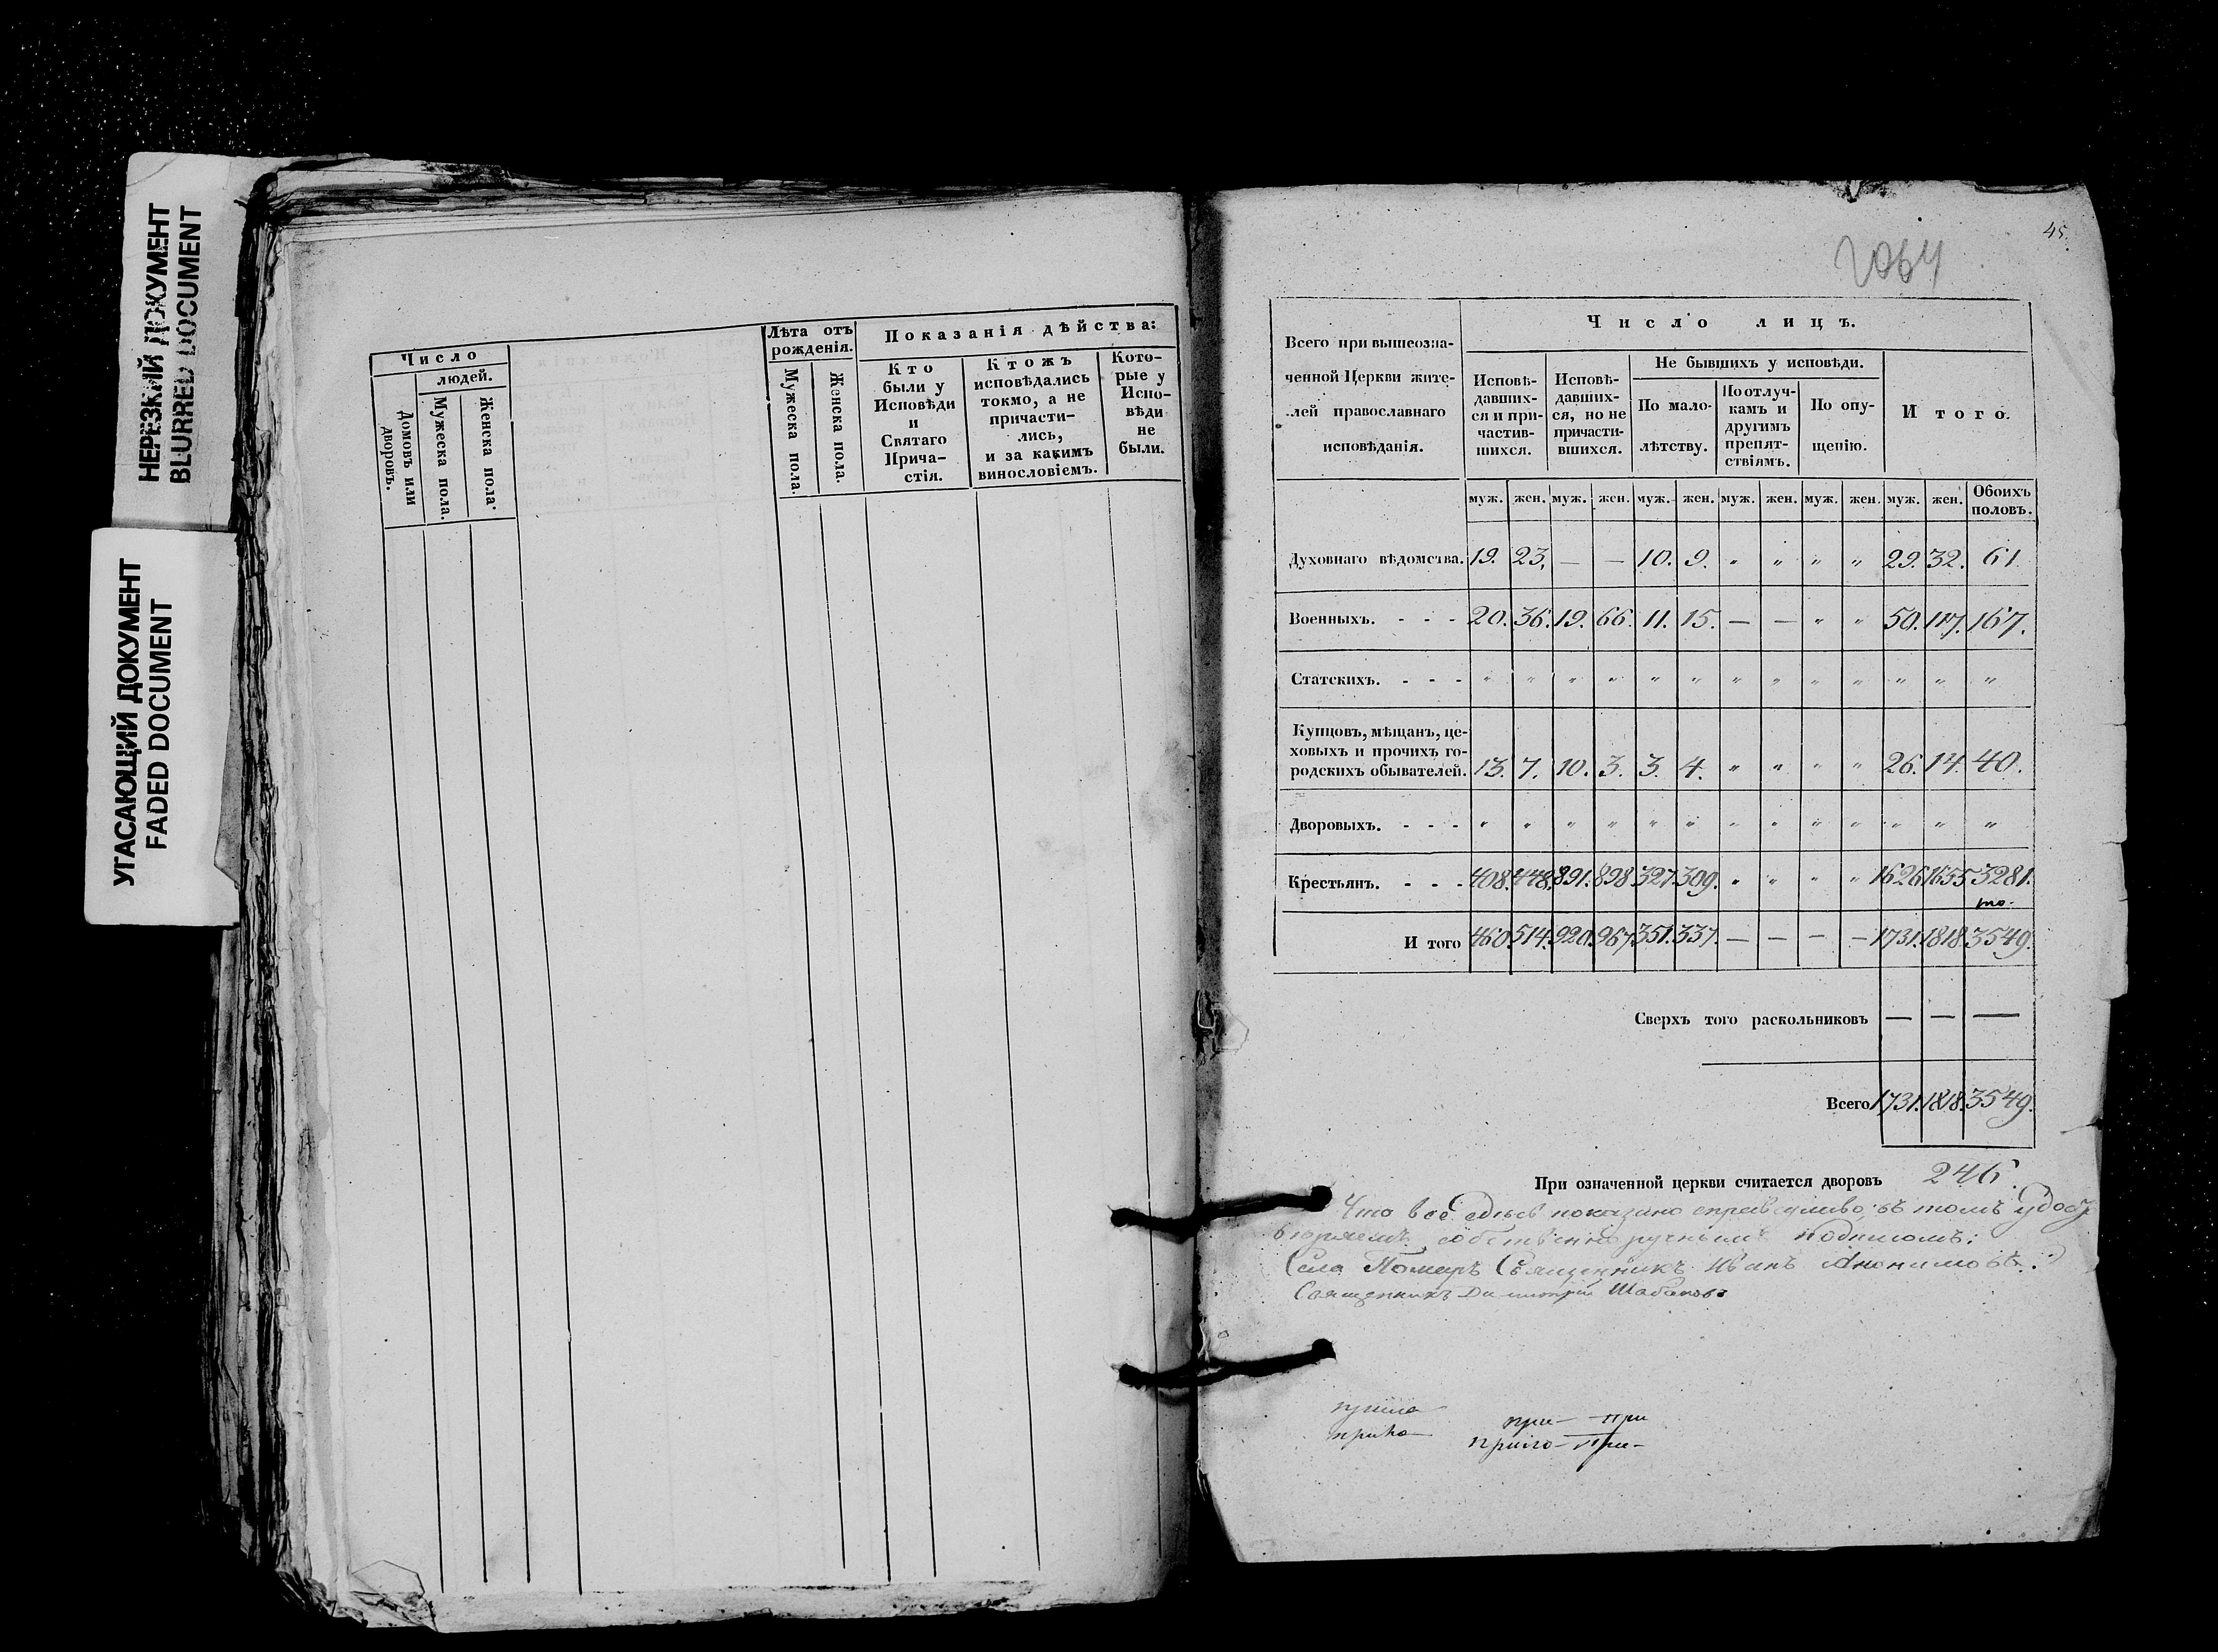 НЕРЕЗКИЙ ДОКУМЕНТ
BLURRED DOCUMENT
УГАСАЮЩИЙ ДОКУМЕНТ
FADED DOCUMENT
Число
людей.
Домовъ или дворовъ.
Мужеска пола.
Женска пола.
Лѣта отъ
рожденія.
Мужеска пола.
Женска пола.
Показанія дѣйства:
Кто
были у
Исповѣди
и
Святаго
Прича-
стія.
Ктожъ
исповѣдались
токмо, а не
причасти-
лись,
и за какимъ
винословіемъ.
Кото-
рые у
Испо-
вѣди
не
были.
45.
2064
Всего при вышеозна-
ченной Церкви жите-
лей православнаго
исповѣданія.
Число лицъ.
Исповѣ-
давших-
ся и при-
частив-
шихся.
Исповѣ-
давших-
ся, но не
причасти-
вшихся.
Не бывшихъ у исповѣди.
По мало-
лѣтству.
По отлуч-
камъ и
другимъ
препят-
ствіямъ.
По опу-
щенію.
Итого.
муж. жен. муж. жен. муж. жен. муж. жен. муж. жен. муж. жен. Обоихъ
половъ.
Духовнаго вѣдомства. 19. 23. — — 10. 9. " " " " 29. 32. 61.
Военныхъ. - - - 20. 36. 19. 66. 11. 15. — — " " 50. 117. 167.
Статскихъ. - - - " " " " " " " " " " " " "
Купцовъ, мѣщанъ, це-
ховыхъ и прочихъ го-
родскихъ обывателей. 13. 7. 10. 3. 3. 4. " " " " 26. 14. 40.
Дворовыхъ. - - - " " " " " " " " " " " " "
Крестьянъ. - - - 408. 448. 891. 898 327. 309. " " " " 1626 1655 3281.
И того 460. 514. 920. 967. 351. 337. — — — — 1731. 1818. 3549.
Сверхъ того раскольниковъ — — —
Всего 1731. 1818. 3549.
При означенной церкви считается дворовъ 246.
Что все здѣсь показано справедливо: въ томъ удосу
вѣряемъ собственноручнымъ подписомъ:
Села Священникъ Иванъ
Священникъ Димитрій Шабановъ
при- При
При-